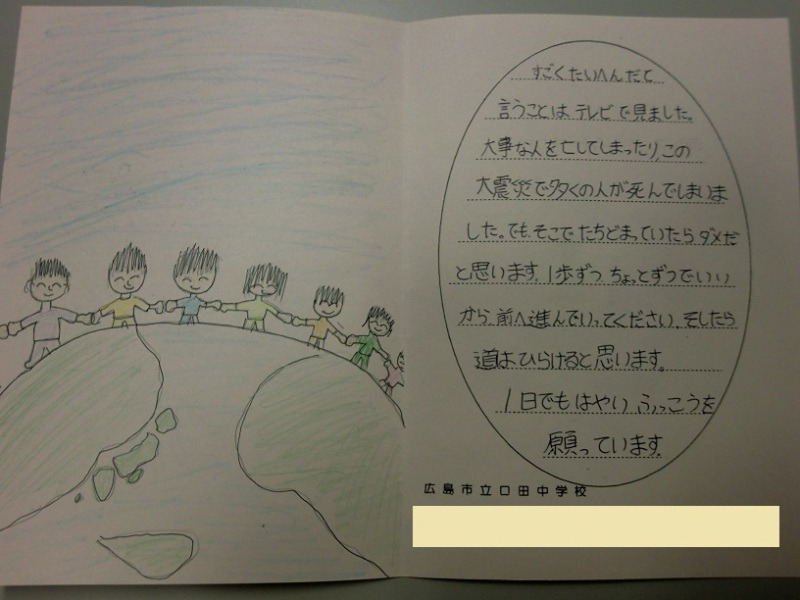 すごくたいへんだと
言うことは、テレビで見ました。
大事な人を亡してしまったり、この
大震災で多くの人が死んでしまいま
した。でも、そこでたちどまっていたらダメだ
と思います。1歩ずつちょっとずつでいい
から、前へ進んでいってください。そしたら
道はひらけると思います。
1日でもはやいふっこうを
願っています。
広島市立口田中学校